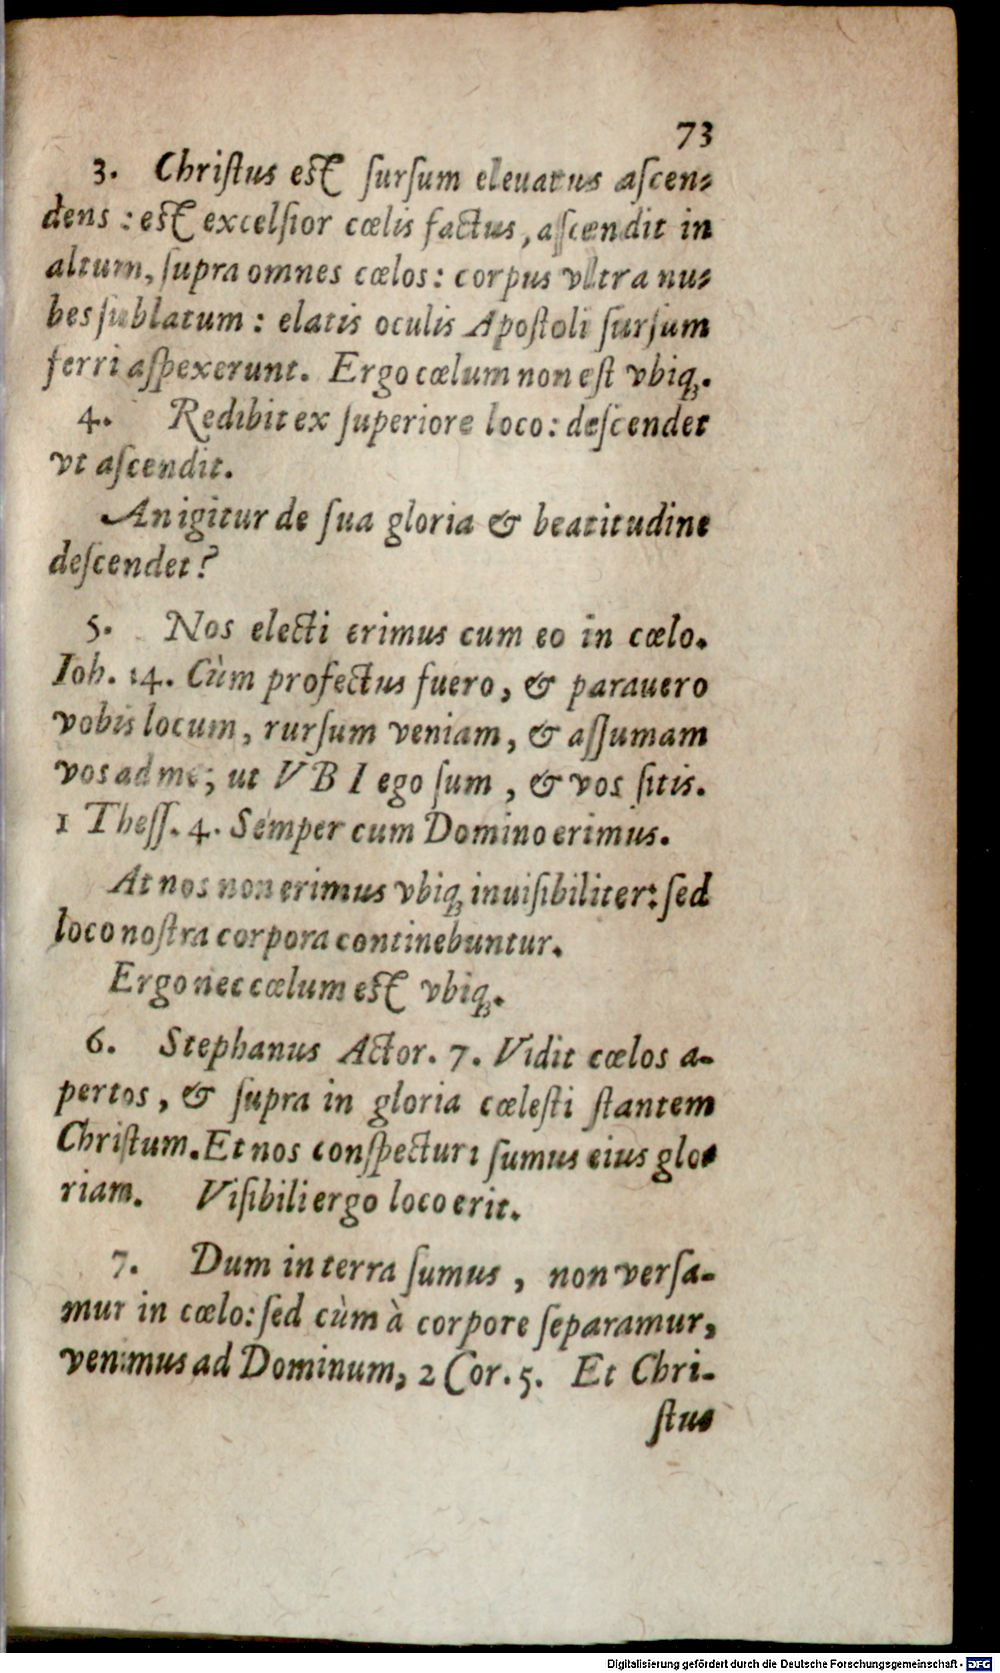 73
3. Christus est sursum eleuatus ascen-
dens : est excelsior cœlis factus, ascendit in
altum, supra omnes cœlos : corpus vltra nu-
bes sublatum : elatis oculis Apostoli sursum
ferri aspexerunt. Ergo cœlum non est vbiq́.
4. Redibit ex superiore loco : descendet
vt ascendit.
An igitur de sua gloria & beatitudine
descendet?
5. Nos electi erimus cum eo in cœlo.
Ioh. 14. Cùm profectus fuero, & parauero
vobis locum, rursum veniam, & assumam
vos ad me; ut VBI ego sum, & vos sitis.
1 Thess. 4. Semper cum Domino erimus.
At nos non erimus vbiq́ inuisibiliter: sed
loco nostra corpora continebuntur.
Ergo nec cœlum est vbiq́.
6. Stephanus Actor. 7. Vidit cœlos a-
pertos, & supra in gloria cœlesti stantem
Christum. Et nos conspecturi sumus eius glo-
riam. Visibili ergo loco erit.
7. Dum in terra sumus, non versa-
mur in cœlo : sed cùm à corpore separamur,
venimus ad Dominum, 2 Cor. 5. Et Chri-
stus
Digitalisierung gefördert durch die Deutsche Forschungsgemeinschaft - DFG